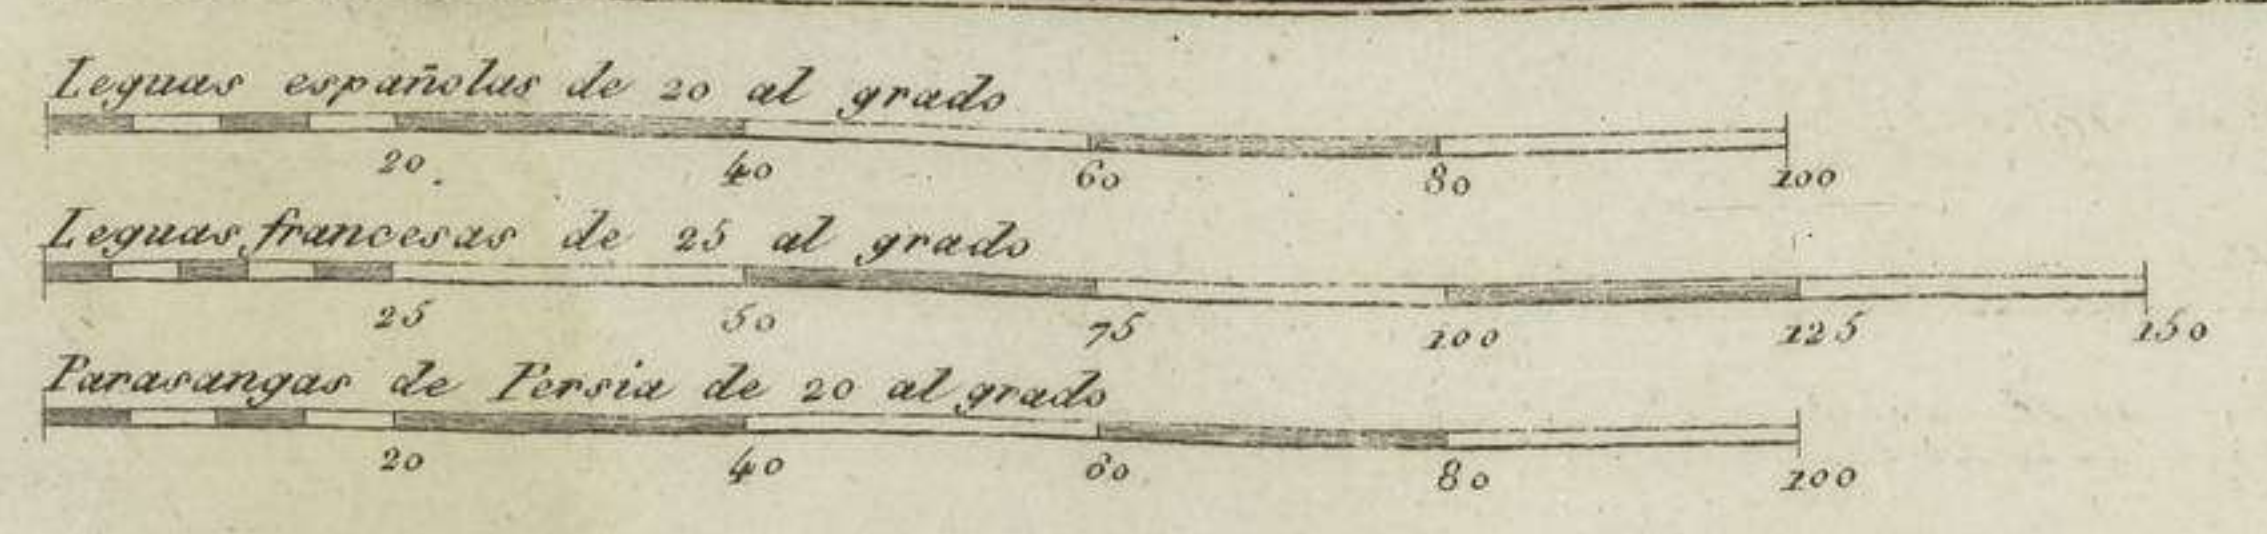 Leguas españolas de 20 al grado
20. 40 60 80 100
Leguas francesas de 25 al grado
25 50 75 100 125 150
Parasangas de Persia de 20 al grado
20 40 60 80 100